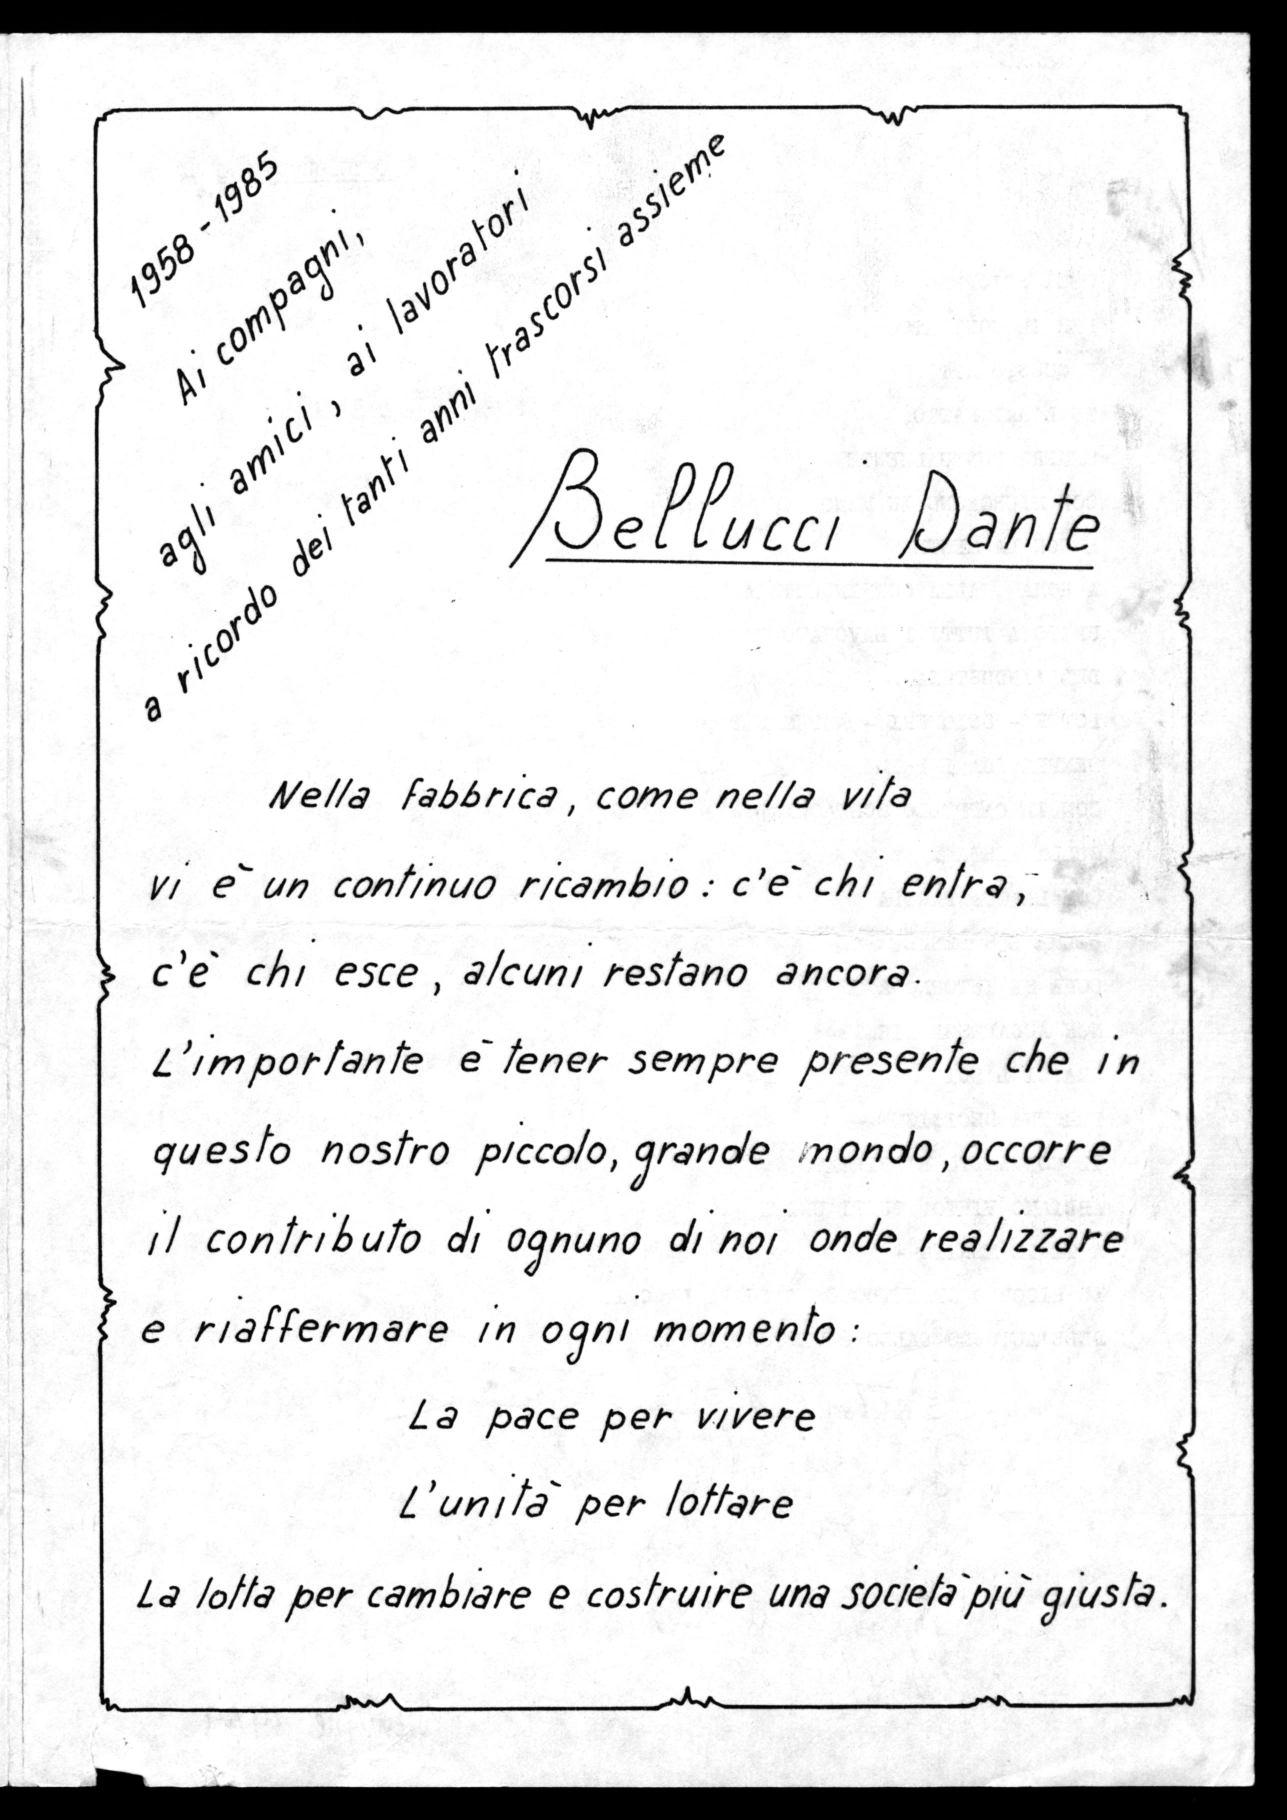 1958 - 1985
Ai compagni,
agli amici, ai lavoratori
a ricordo dei tanti anni trascorsi assieme
Bellucci Dante
Nella fabbrica, come nella vita
vi è un continuo ricambio: c'è chi entra,
c'è chi esce, alcuni restano ancora.
L'importante è tener sempre presente che in
questo nostro piccolo, grande mondo, occorre
il contributo di ognuno di noi onde realizzare
e riaffermare in ogni momento:
La pace per vivere
L'unità per lottare
La lotta per cambiare e costruire una società più giusta.